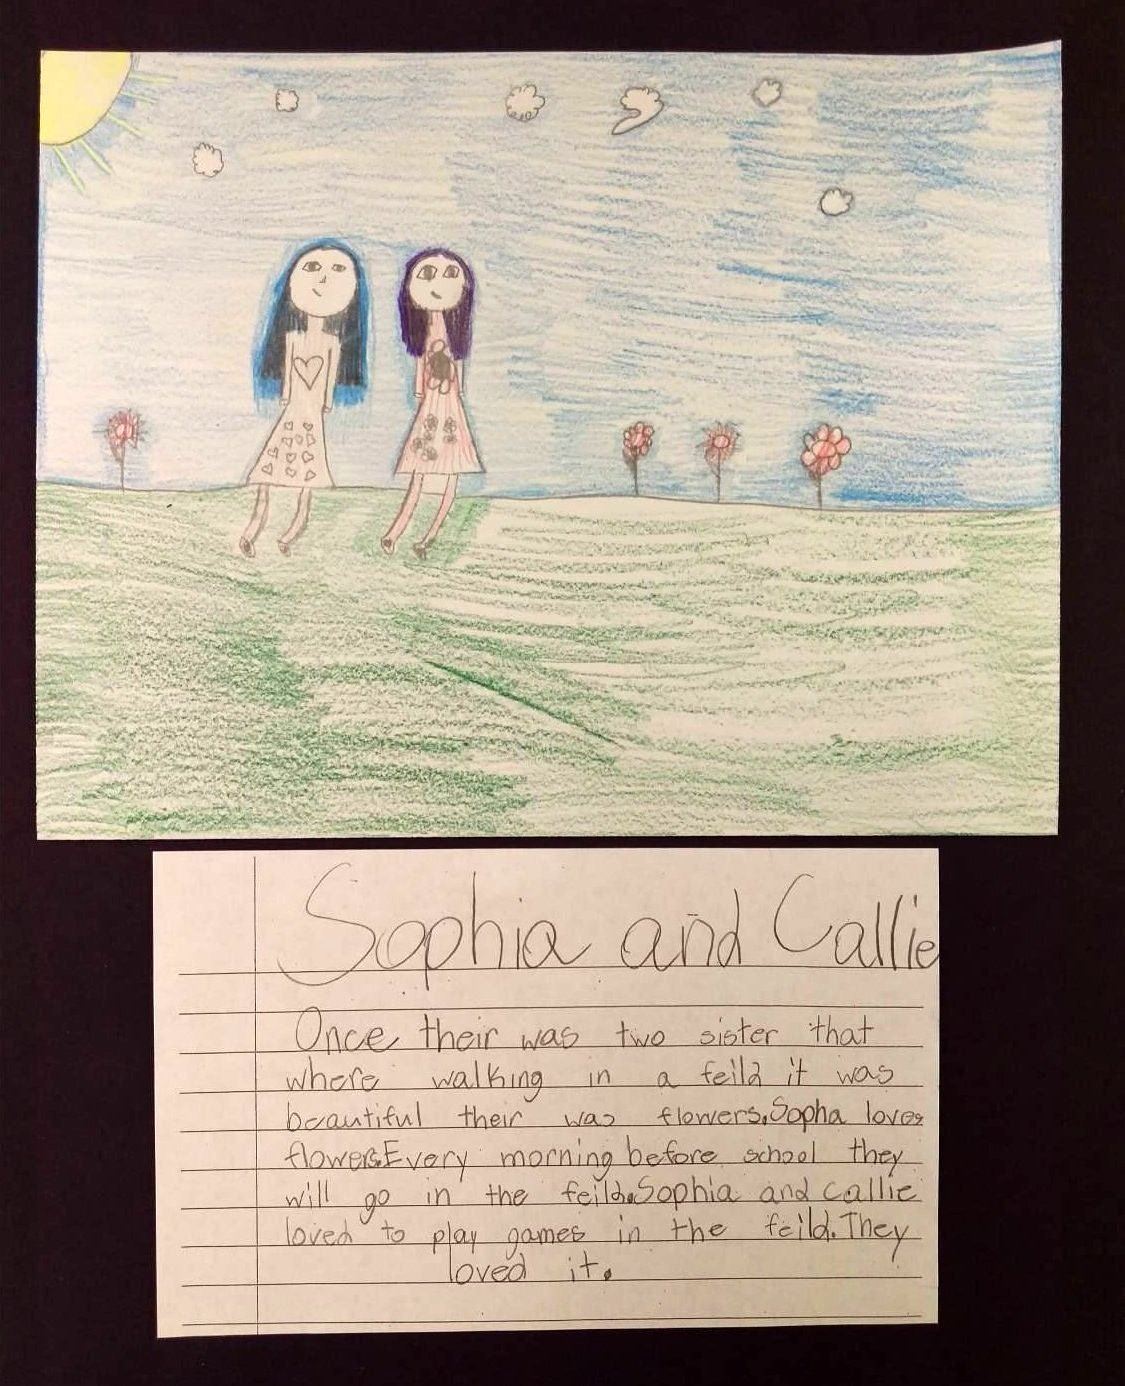 Sophia and Callie
Once their was two sister that
where walking in a feild it was
beautiful their was flowers.Sopha loves
flowers.Every morning before school they
will go in the feild.Sophia and callie
loved to play games in the feild.They
loved it.